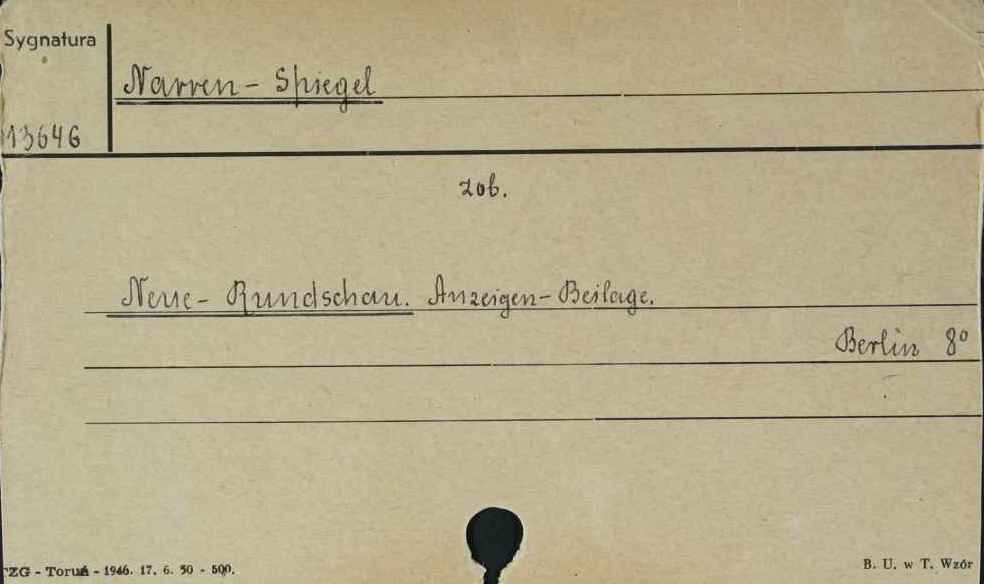 Sygnatura
Narren - Spiegel
13646
zob.
Neue - Rundschau. Anzeigen - Beilage.
Berlin 8°
TZG - Toruń - 1946. 17. 6. 50 - 500.
B. U. w T. Wzór